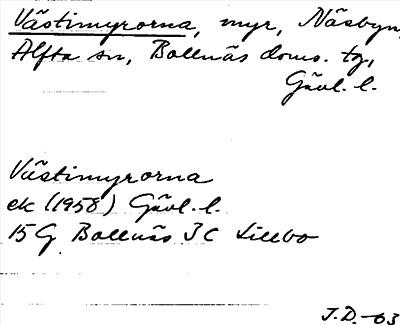 Västimyrorna, myr, Näsbyn,
Alfta sn, Bollnäs doms. tg,
Gävl. l.
Västimyrorna
ek (1958) Gävl. l.
15G Bollnäs 3C Lillbo
J.D. -63